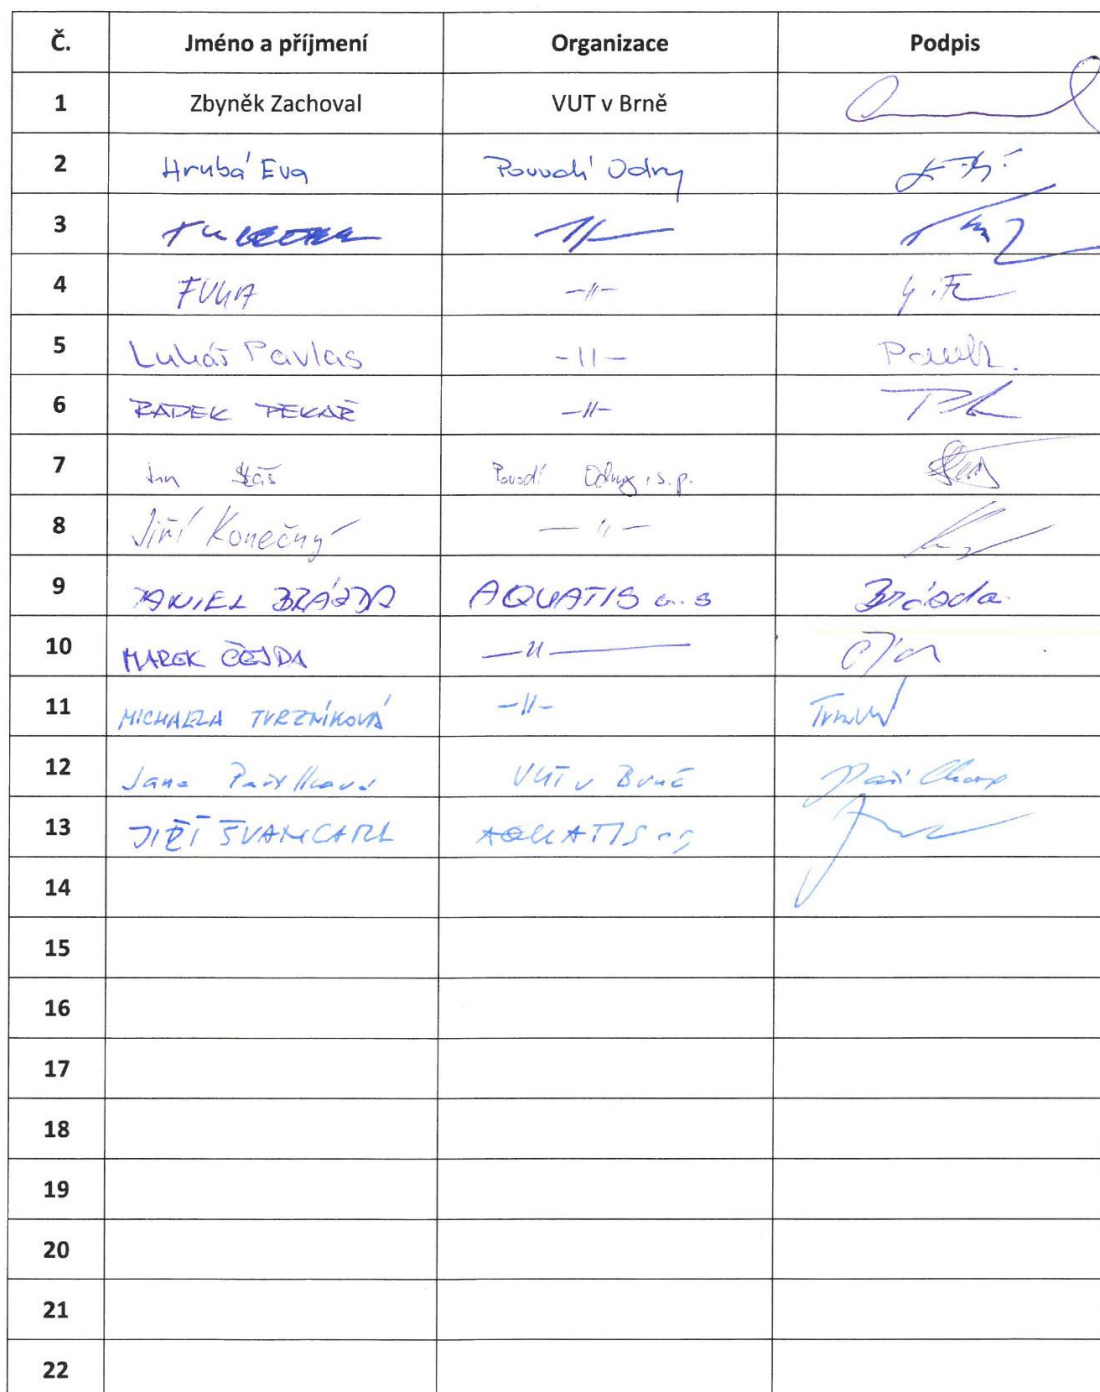 Č. Jméno a příjmení Organizace Podpis
1 Zbyněk Zachoval VUT v Brně
2 Hrubá Eva Povodí Odry
3 -//-
4 FUKA -//-
5 Lukáš Pavlas -//-
6 RADEK PEKAŘ -//-
7 Povodí Odry, s.p.
8 Jiří Konečný -//-
9 DANIEL BRÁZDA AQUATIS a.s Brázda
10 MAREK ČEJDA -//-
11 MICHAELA TVRZNÍKOVÁ -//-
12 Jana Pařílková VUT v Brně
13 JIŘÍ ŠVANCARA AQUATIS
14
15
16
17
18
19
20
21
22